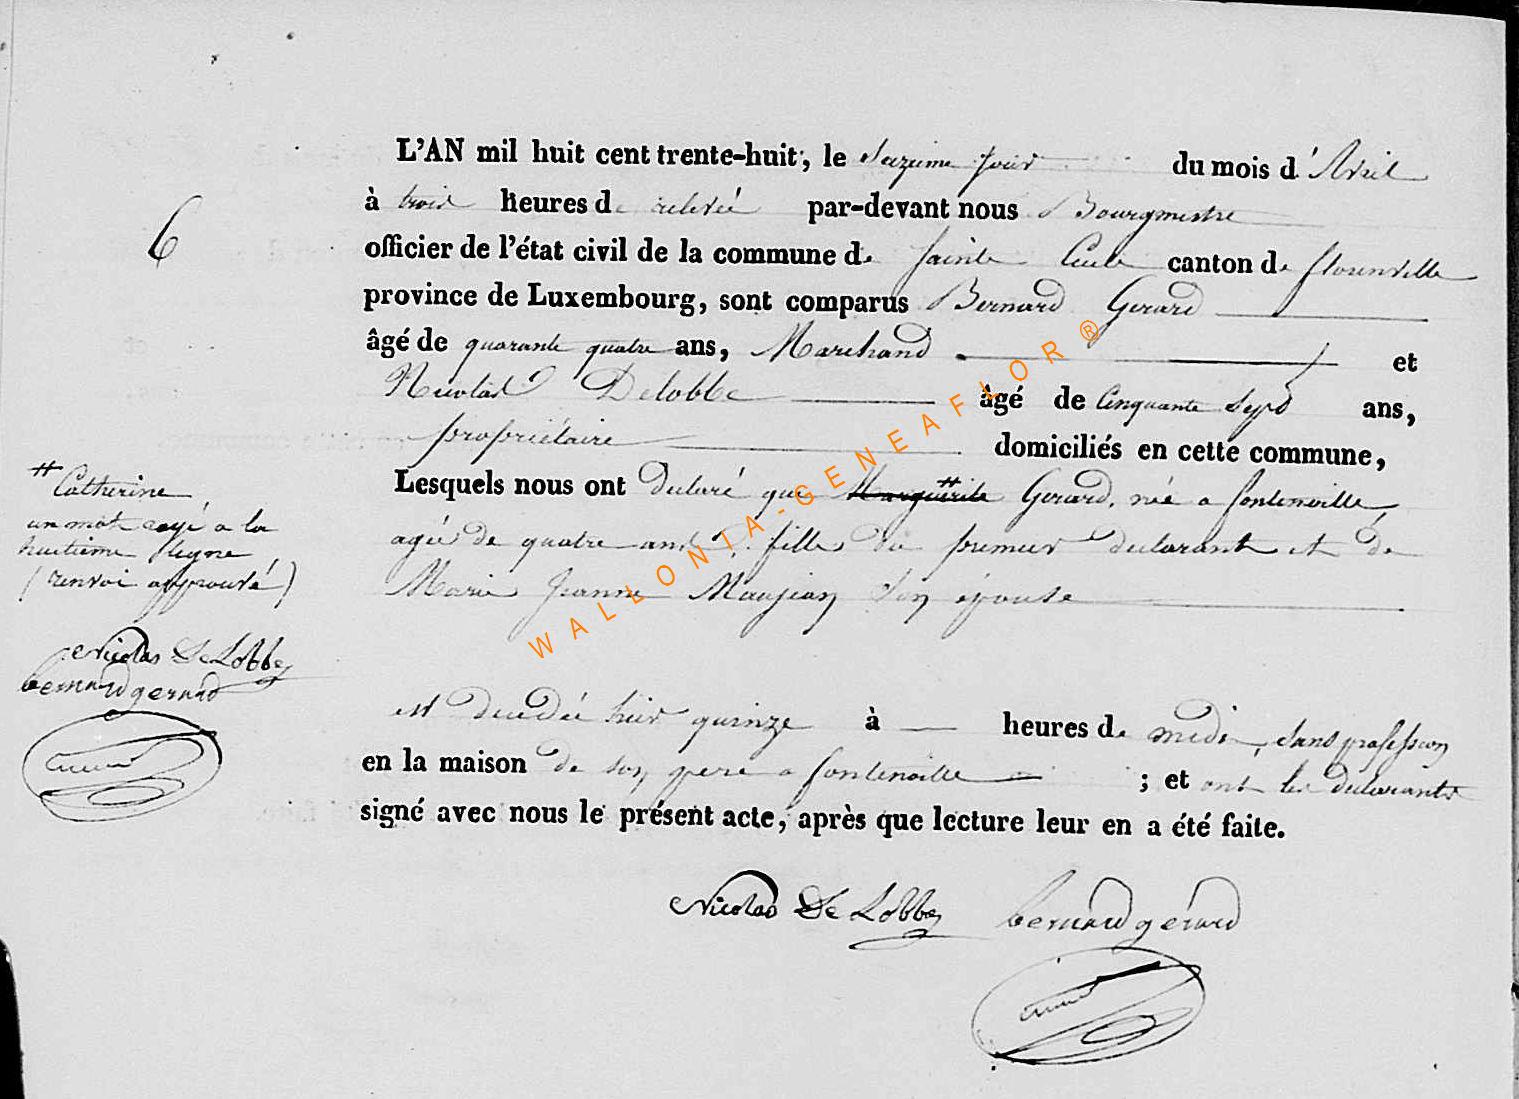 6
L'AN mil huit cent trente-huit, le Seizieme jour du mois d'Avril
à trois heures de relevée par-devant nous Bourgmestre
officier de l'état civil de la commune de Sainte Cecile canton de florenville
province de Luxembourg, sont comparus Bernard Gerard
âgé de quarante quatre ans, Marchand et
Nicolas Delobbe âgé de Cinquante Sept ans,
propriétaire domiciliés en cette commune,
Lesquels nous ont declaré que Marguerite # Gerard, née a fontenoille,
agée de quatre ans, fille du premier declarant et de
Marie Jeanne Maujean Son épouse
est decedée hier quinze à heures de midi, sans profession
en la maison de son pere a fontenoille ; et ont les declarants
signé avec nous le présent acte, après que lecture leur en a été faite.
Nicolas De Lobbe bernard gerard
# Catherine
un mot rayé a la
huitieme ligne
(renvoi approuvé)
Nicolas De Lobbe
bernard gerard
WALLONIA-GENEAFLOR®